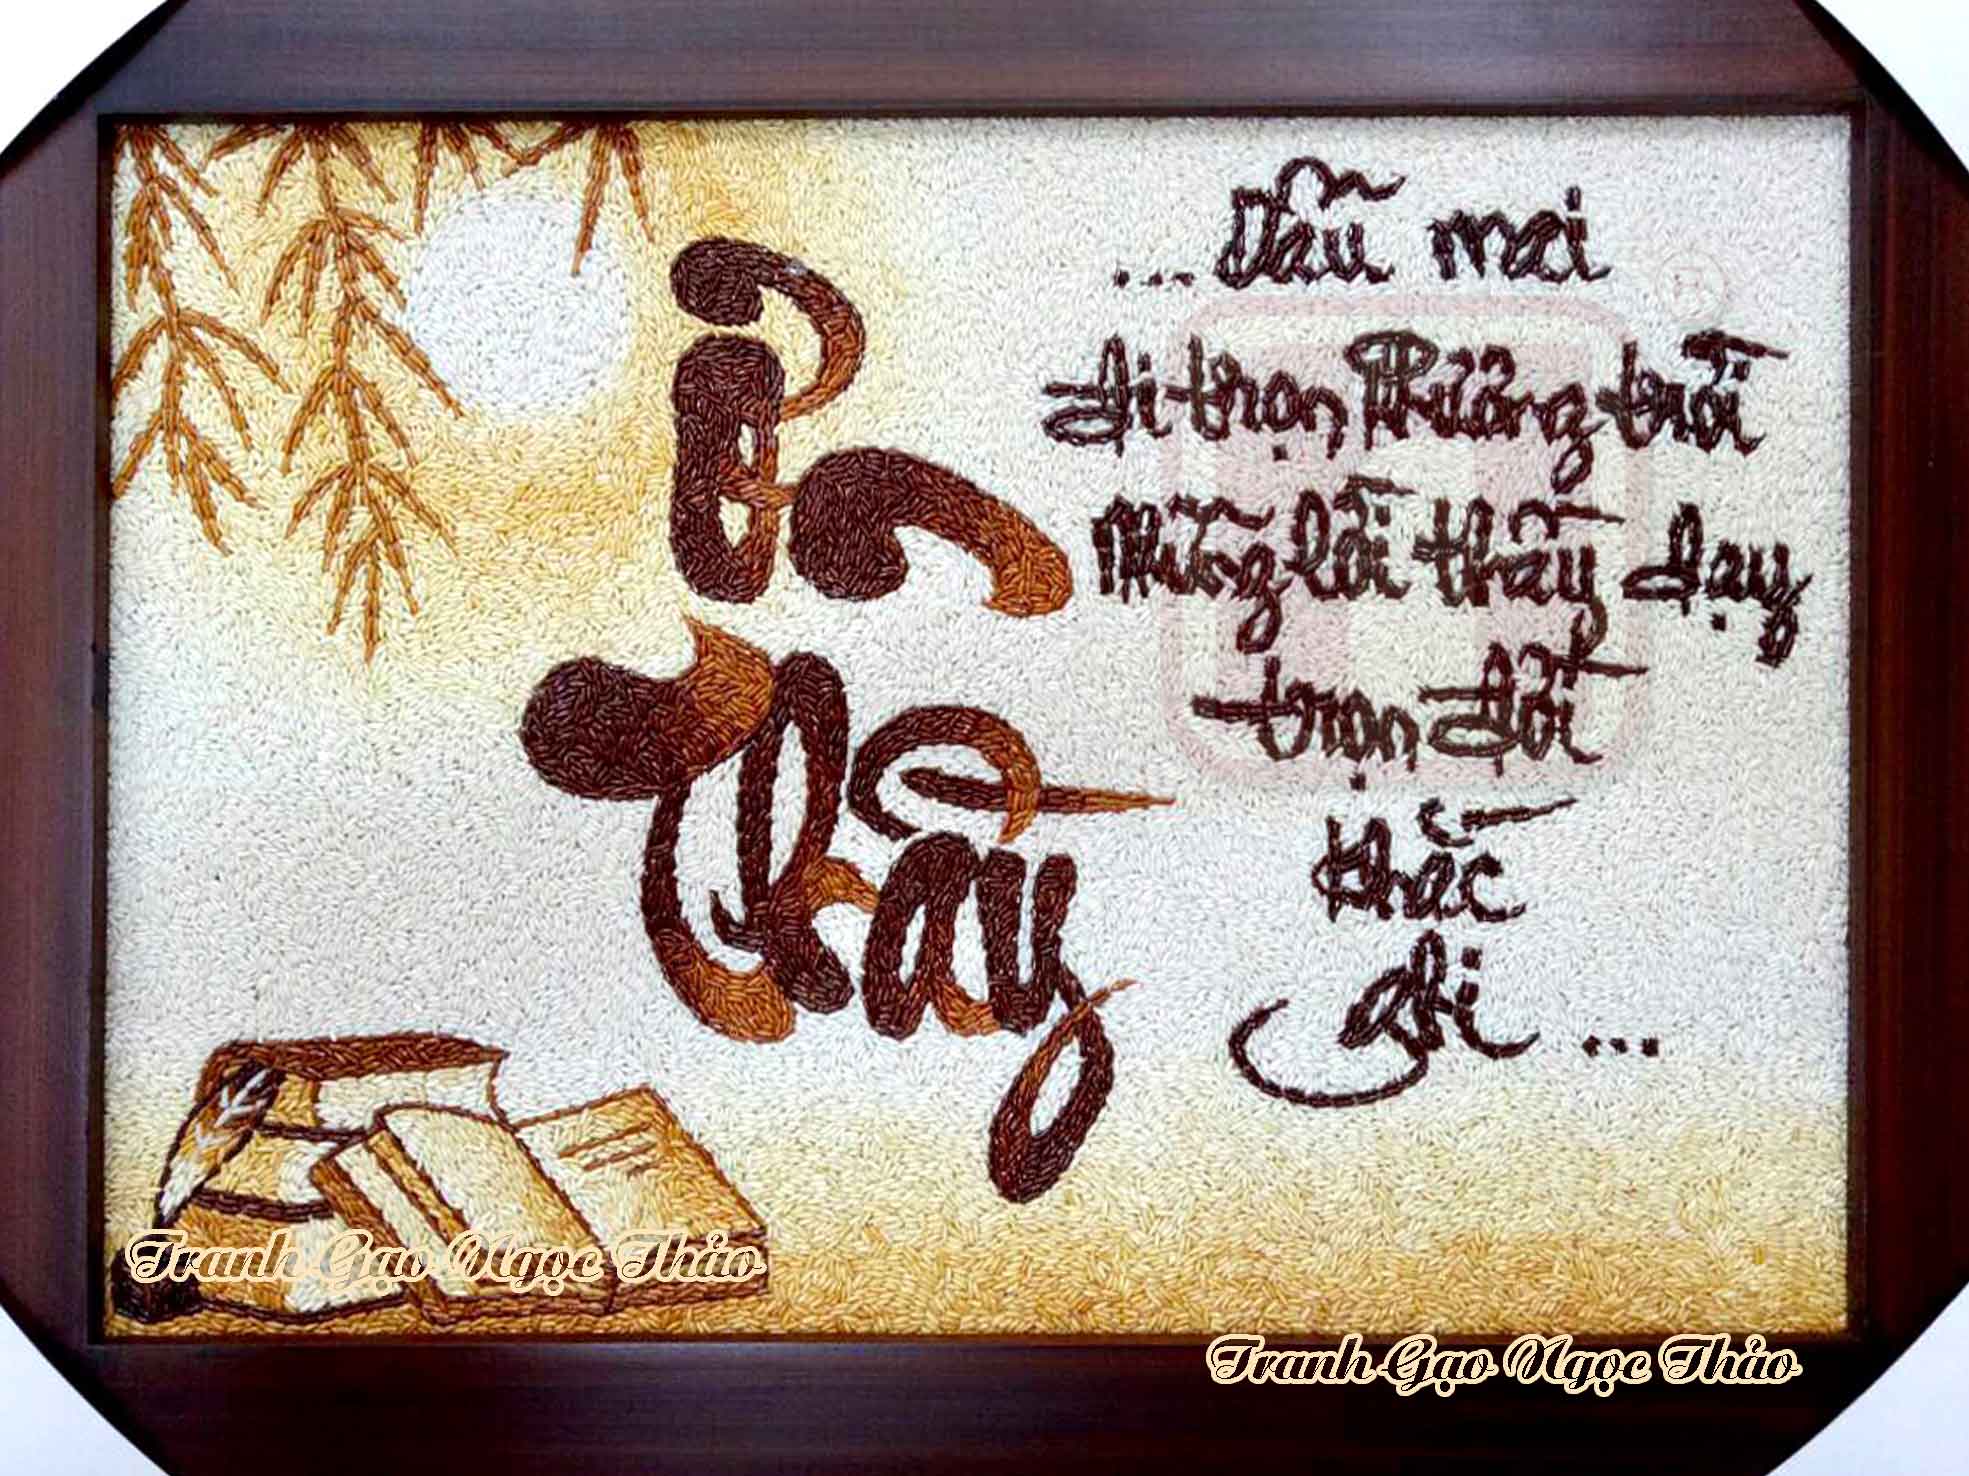 Ơn
thầy
...Dẫu mai
đi trọn phương trời
Những lời thầy dạy
trọn đời
khắc
ghi ...
Tranh Gạo Ngọc Thảo
Tranh Gạo Ngọc Thảo